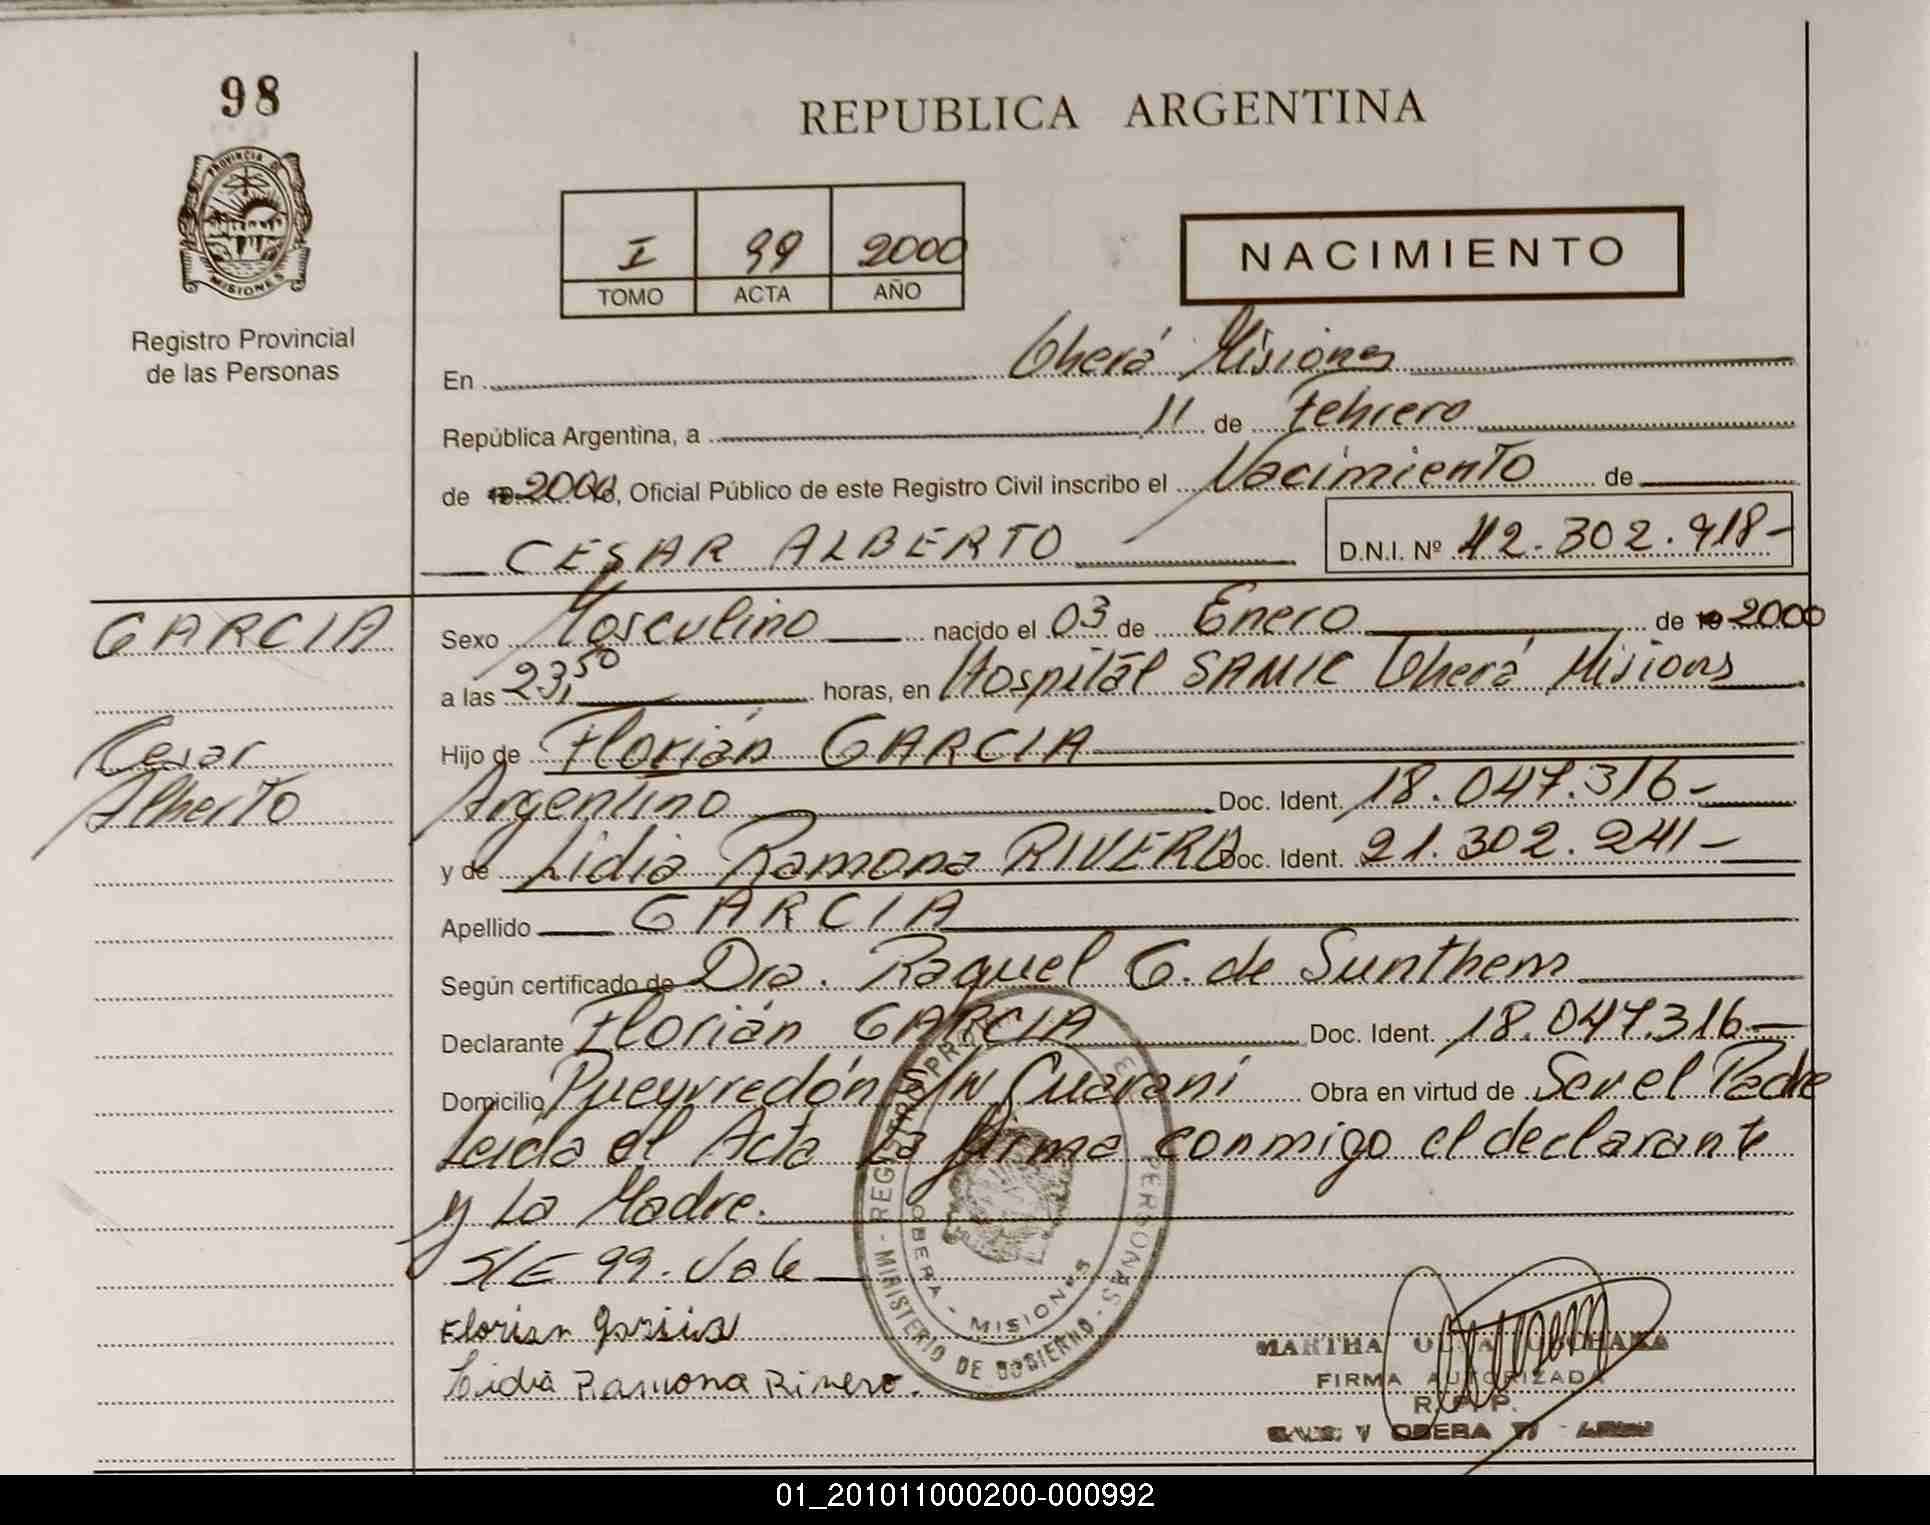 98
REPUBLICA ARGENTINA
PROVINCIA D
MISIONES
Registro Provincial
de las Personas
I 99 2000
TOMO ACTA AÑO
NACIMIENTO
En Oberá Misiones
República Argentina, a 11 de Febrero
de 19 2000 Yo, Oficial Público de este Registro Civil inscribo el Nacimiento de
CESAR ALBERTO D.N.I. Nº 42.302.918-
GARCIA
Sexo Masculino nacido el 03 de Enero de 19 2000
a las 23,50 horas, en Hospitál SAMIC Oberá Misions
Cesar
Alberto
Hijo de Florián GARCIA
Argentino Doc. Ident. 18.047.316-
y de Lidia Ramona RIVERO Doc. Ident. 21.302.241-
Apellido GARCIA
Según certificado de Dra. Raquel G. de Sunthem
Declarante Florián GARCIA Doc. Ident. 18.047.316-
Domicilio Pueyrredón S/N Guaraní Obra en virtud de Ser el Padre
Leida el Acta La firma conmigo el declarante
y La Madre.
S/E 99. Vale
Florian garsia
Lidia Ramona Rivero.
PERSONAS - MINISTERIO DE GOBIERNO -
OBERA - MISIONES
MARTHA
FIRMA AUTORIZADA
R. P. P.
OBERA
01_201011000200-000992